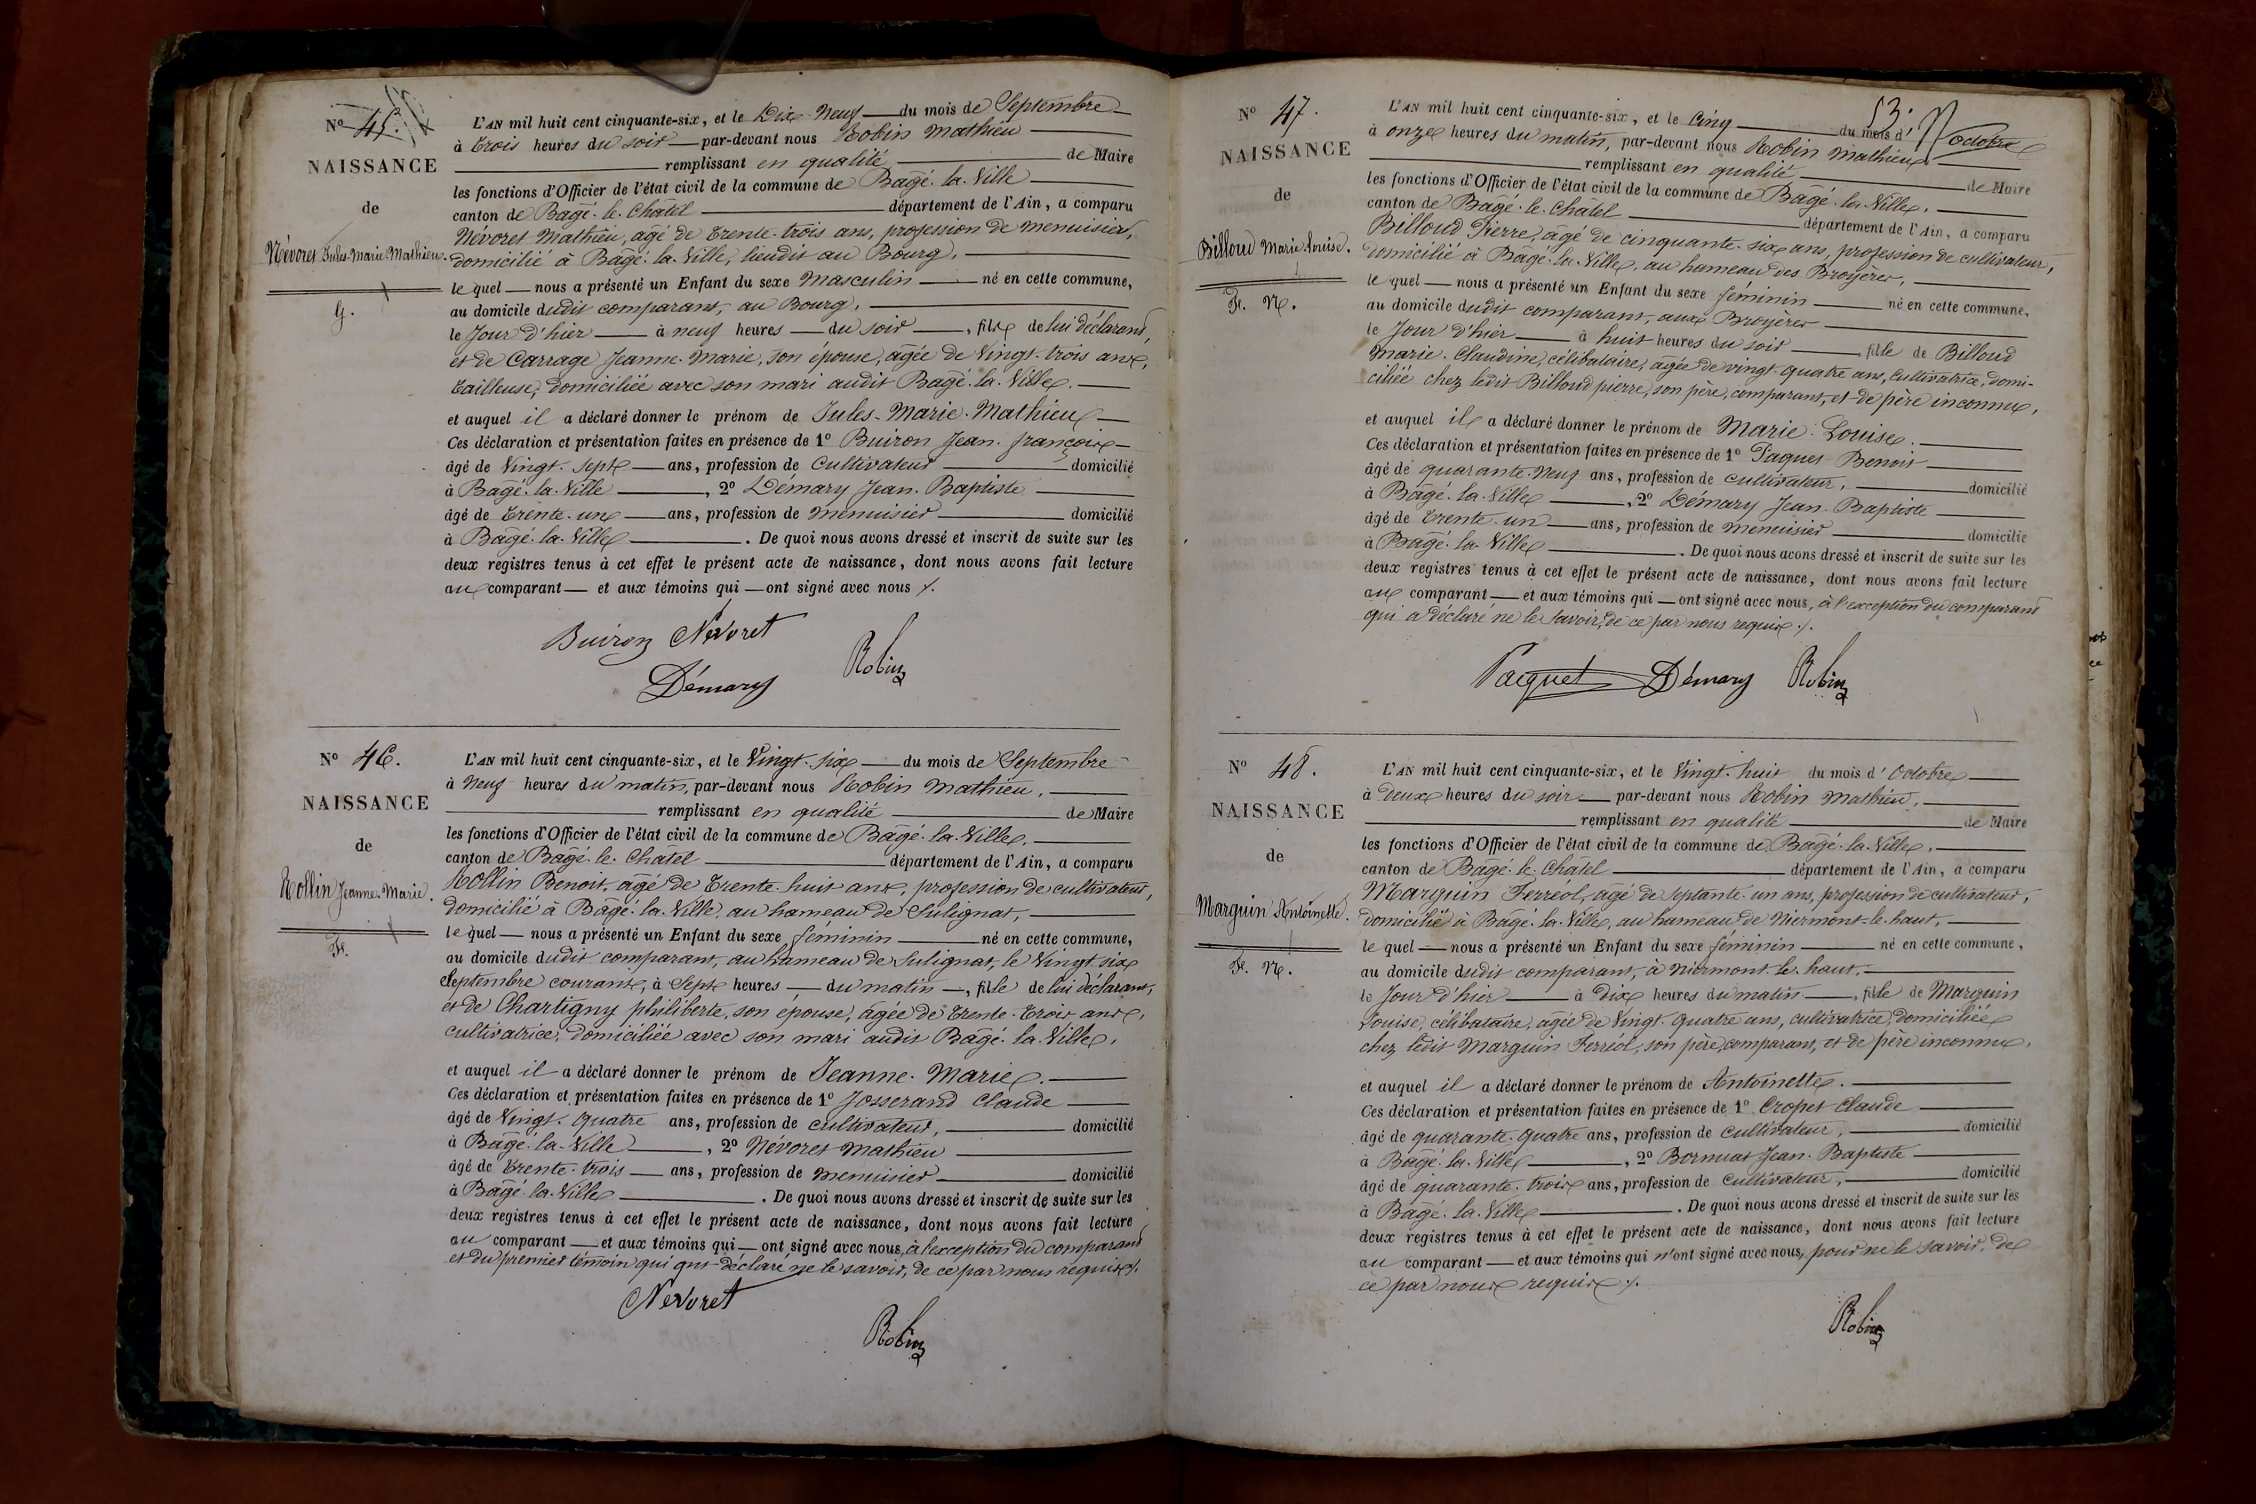 Nº 45.
NAISSANCE
de
Névoret Jules-Marie-Mathieu.
G.
L'AN mil huit cent cinquante-six, et le Dix-Neuf du mois de Septembre
à trois heures du soir par-devant nous Robin Mathieu
remplissant en qualité de Maire
les fonctions d'Officier de l'état civil de la commune de Bâgé-la-Ville
canton de Bâgé-le-Châtel département de l'Ain, a comparu
Névoret Mathieu, âgé de trente-trois ans, profession de menuisier,
domicilié à Bâgé-la-Ville, lieudit au Bourg,
lequel nous a présenté un Enfant du sexe masculin né en cette commune,
au domicile dudit comparant, au Bourg,
le jour d'hier à neuf heures du soir, fils de lui déclarant,
et de Carrage Jeanne-Marie, son épouse, âgée de vingt-trois ans,
tailleuse, domiciliée avec son mari audit Bâgé-la-Ville.
et auquel il a déclaré donner le prénom de Jules-Marie-Mathieu
Ces déclaration et présentation faites en présence de 1º Buiron Jean-françois
âgé de vingt-sept ans, profession de cultivateur domicilié
à Bâgé-la-Ville, 2º Démary Jean-Baptiste
âgé de trente-un ans, profession de menuisier domicilié
à Bâgé-la-Ville. De quoi nous avons dressé et inscrit de suite sur les
deux registres tenus à cet effet le présent acte de naissance, dont nous avons fait lecture
au comparant et aux témoins qui ont signé avec nous ./.
Buiron Névoret
Démary Robin
Nº 46.
NAISSANCE
de
Rollin Jeanne-Marie.
Fe.
L'AN mil huit cent cinquante-six, et le Vingt-six du mois de Septembre
à neuf heures du matin, par-devant nous Robin Mathieu,
remplissant en qualité de Maire
les fonctions d'Officier de l'état civil de la commune de Bâgé-la-Ville,
canton de Bâgé-le-Châtel département de l'Ain, a comparu
Rollin Benoit, âgé de trente-huit ans, profession de cultivateur,
domicilié à Bâgé-la-Ville, au hameau de Sulignat,
lequel nous a présenté un Enfant du sexe féminin né en cette commune,
au domicile dudit comparant, au hameau de Sulignat, le vingt six
Septembre courant, à sept heures du matin, fille de lui déclarant,
et de Chartigny philiberte, son épouse, âgée de trente-trois ans,
cultivatrice, domiciliée avec son mari audit Bâgé-la-Ville,
et auquel il a déclaré donner le prénom de Jeanne-Marie.
Ces déclaration et présentation faites en présence de 1º Josserand Claude
âgé de vingt-quatre ans, profession de cultivateur, domicilié
à Bâgé-la-Ville, 2º Névoret Mathieu
âgé de trente-trois ans, profession de menuisier domicilié
à Bâgé-la-Ville. De quoi nous avons dressé et inscrit de suite sur les
deux registres tenus à cet effet le présent acte de naissance, dont nous avons fait lecture
au comparant et aux témoins qui ont signé avec nous, à l'exception du comparant
et du premier témoin qui ont déclaré ne le savoir, de ce par nous requis ./.
Névoret
Robin
53.
Nº 47.
NAISSANCE
de
Billoud Marie-Louise.
Fe. N.
L'AN mil huit cent cinquante-six, et le Cinq du mois d'octobre
à onze heures du matin, par-devant nous Robin Mathieu
remplissant en qualité de Maire
les fonctions d'Officier de l'état civil de la commune de Bâgé-la-Ville,
canton de Bâgé-le-Châtel département de l'Ain, a comparu
Billoud Pierre, âgé de cinquante-six ans, profession de cultivateur,
domicilié à Bâgé-la-Ville, au hameau des Broyères,
lequel nous a présenté un Enfant du sexe féminin né en cette commune,
au domicile dudit comparant, aux Broyères
le jour d'hier à huit heures du soir, fille de Billoud
Marie-Claudine, célibataire, âgée de vingt quatre ans, cultivatrice, domi-
ciliée chez ledit Billoud pierre, son père, comparant, et de père inconnu,
et auquel il a déclaré donner le prénom de Marie-Louise.
Ces déclaration et présentation faites en présence de 1º Paquet Benoit
âgé de quarante-neuf ans, profession de cultivateur, domicilié
à Bâgé-la-Ville, 2º Démary Jean-Baptiste
âgé de trente-un ans, profession de menuisier domicilié
à Bâgé-la-Ville. De quoi nous avons dressé et inscrit de suite sur les
deux registres tenus à cet effet le présent acte de naissance, dont nous avons fait lecture
au comparant et aux témoins qui ont signé avec nous, à l'exception du comparant
qui a déclaré ne le savoir, de ce par nous requis ./.
Pacquet Démary Robin
Nº 48.
NAISSANCE
de
Marguin Antoinette.
Fe. N.
L'AN mil huit cent cinquante-six, et le Vingt-huit du mois d'Octobre
à deux heures du soir par-devant nous Robin Mathieu,
remplissant en qualité de Maire
les fonctions d'Officier de l'état civil de la commune de Bâgé-la-Ville,
canton de Bâgé-le-Châtel département de l'Ain, a comparu
Marguin Ferréol, âgé de septante-un ans, profession de cultivateur,
domicilié à Bâgé-la-Ville, au hameau de Niermont-le-haut,
lequel nous a présenté un Enfant du sexe féminin né en cette commune,
au domicile dudit comparant, à Niermont-le-haut,
le jour d'hier à dix heures du matin, fille de Marguin
Louise, célibataire, âgée de vingt-quatre ans, cultivatrice, domiciliée
chez ledit Marguin Ferréol, son père, comparant, et de père inconnu,
et auquel il a déclaré donner le prénom de Antoinette.
Ces déclaration et présentation faites en présence de 1º Cropet Claude
âgé de quarante-quatre ans, profession de cultivateur, domicilié
à Bâgé-la-Ville, 2º Bornuat Jean-Baptiste
âgé de quarante-trois ans, profession de cultivateur, domicilié
à Bâgé-la-Ville. De quoi nous avons dressé et inscrit de suite sur les
deux registres tenus à cet effet le présent acte de naissance, dont nous avons fait lecture
au comparant et aux témoins qui n'ont signé avec nous, pour ne le savoir, de
ce par nous requis ./.
Robin